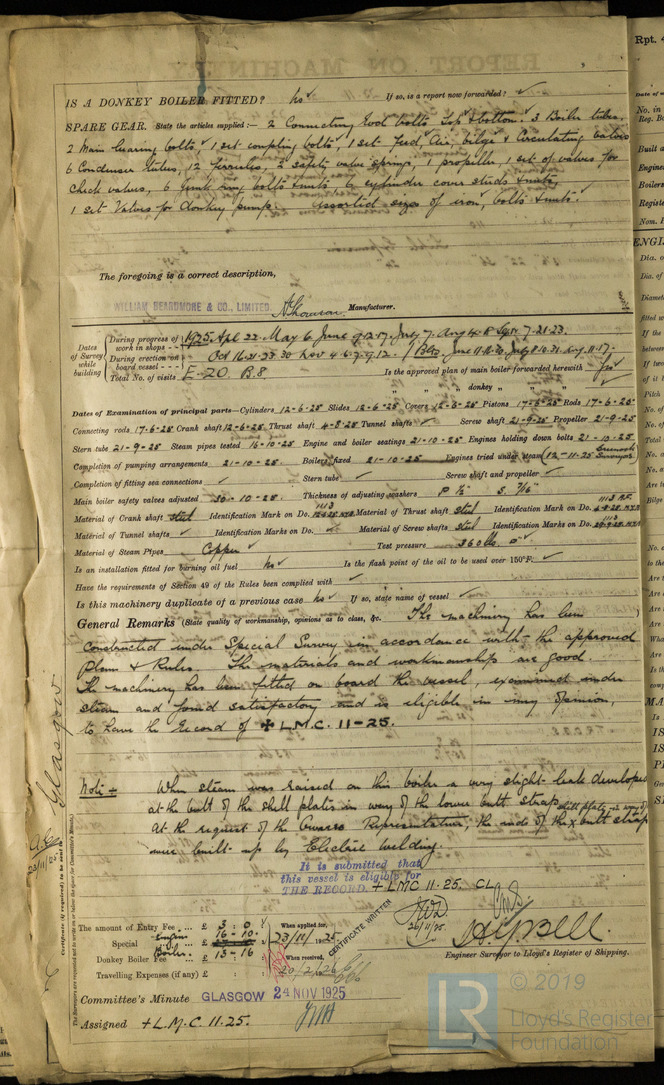 IS A DONKEY BOILER FITTED? No ✓ If so, is a report now forwarded? ✓
SPARE GEAR. State the articles supplied:— 2 Connecting rod bolts top & bottom. 3 Boiler tubes.
2 Main bearing bolts, 1 set coupling bolts, 1 set feed, Air, bilge & Circulating valves
6 Condenser tubes, 12 ferrules, 2 safety valve springs, 1 propeller, 1 set of valves for
Check valves, 6 junk ring bolts & nuts, 6 cylinder cover studs & nuts,
1 set Valves for donkey pump. Assorted sizes of iron, bolts & nuts.
The foregoing is a correct description,
WILLIAM BEARDMORE & CO., LIMITED. Manufacturer.
Dates of Survey while building
During progress of work in shops - - 1925 Apl 22 May 6 June 9.12.17. July 7. Aug 4.18 Sept. 7.21.23.
During erection on board vessel - - - Oct 16.21.23.30 Nov 4.6.7.9.12. / Blr. June 11.16.30. July 8.10.31. Aug. 11.17.
Total No. of visits E-20 B.8 Is the approved plan of main boiler forwarded herewith Yes
" " " donkey " " "
Dates of Examination of principal parts—Cylinders 12-6-25 Slides 12-6-25 Covers 12-6-25 Pistons 17-6-25 Rods 17-6-25
Connecting rods 17-6-25 Crank shaft 12-6-25 Thrust shaft 4-8-25 Tunnel shafts ✓ Screw shaft 21-9-25 Propeller 21-9-25
Stern tube 21-9-25 Steam pipes tested 16-10-25 Engine and boiler seatings 21-10-25 Engines holding down bolts 21-10-25
Completion of pumping arrangements 21-10-25 Boilers fixed 21-10-25 Engines tried under steam (12-11-25 Greenock Surveyors)
Completion of fitting sea connections ✓ Stern tube ✓ Screw shaft and propeller ✓
Main boiler safety valves adjusted 30-10-25. Thickness of adjusting washers P ½" S. 7/16"
Material of Crank shaft Steel Identification Mark on Do. 1113 Material of Thrust shaft Steel Identification Mark on Do. 1113
Material of Tunnel shafts ✓ Identification Marks on Do. ✓ Material of Screw shafts Steel Identification Marks on Do. 1113
Material of Steam Pipes Copper ✓ Test pressure 360 lbs. □"
Is an installation fitted for burning oil fuel No ✓ Is the flash point of the oil to be used over 150°F. ✓
Have the requirements of Section 49 of the Rules been complied with ✓
Is this machinery duplicate of a previous case No ✓ If so, state name of vessel ✓
General Remarks (State quality of workmanship, opinions as to class, &c. The machinery has been
constructed under Special Survey in accordance with the approved
Plan & Rules. The materials and workmanship are good.
The machinery has been fitted on board the vessel, examined under
steam and found satisfactory and is eligible in my opinion,
to have the Record of ✠ L.M.C. 11-25.
Note:— When steam was raised on this boiler a very slight leak developed
at the butt of the shell plates in way of the lower butt strap
At the request of the Owners Representative, the ends of the butt strap
were built up by Electric welding.
It is submitted that
this vessel is eligible for
THE RECORD. + LMC 11.25. CL
The amount of Entry Fee ... £ 3 : 0 When applied for,
Special Engine ... £ 16-10. 23/11/1925
Donkey Boiler Fee Boiler. £ 13-16 When received,
Travelling Expenses (if any) £ : : 20/2/26
CERTIFICATE WRITTEN
26/11/25.
Engineer Surveyor to Lloyd's Register of Shipping.
Committee's Minute GLASGOW 24 NOV 1925
Assigned + L.M.C. 11.25.
Glasgow
23/11/25
Certificate (if required) to be sent to
The Surveyors are requested not to write on or below the space for Committee's Minute.
© 2019
LR Lloyd's Register
Foundation
Rpt. 4